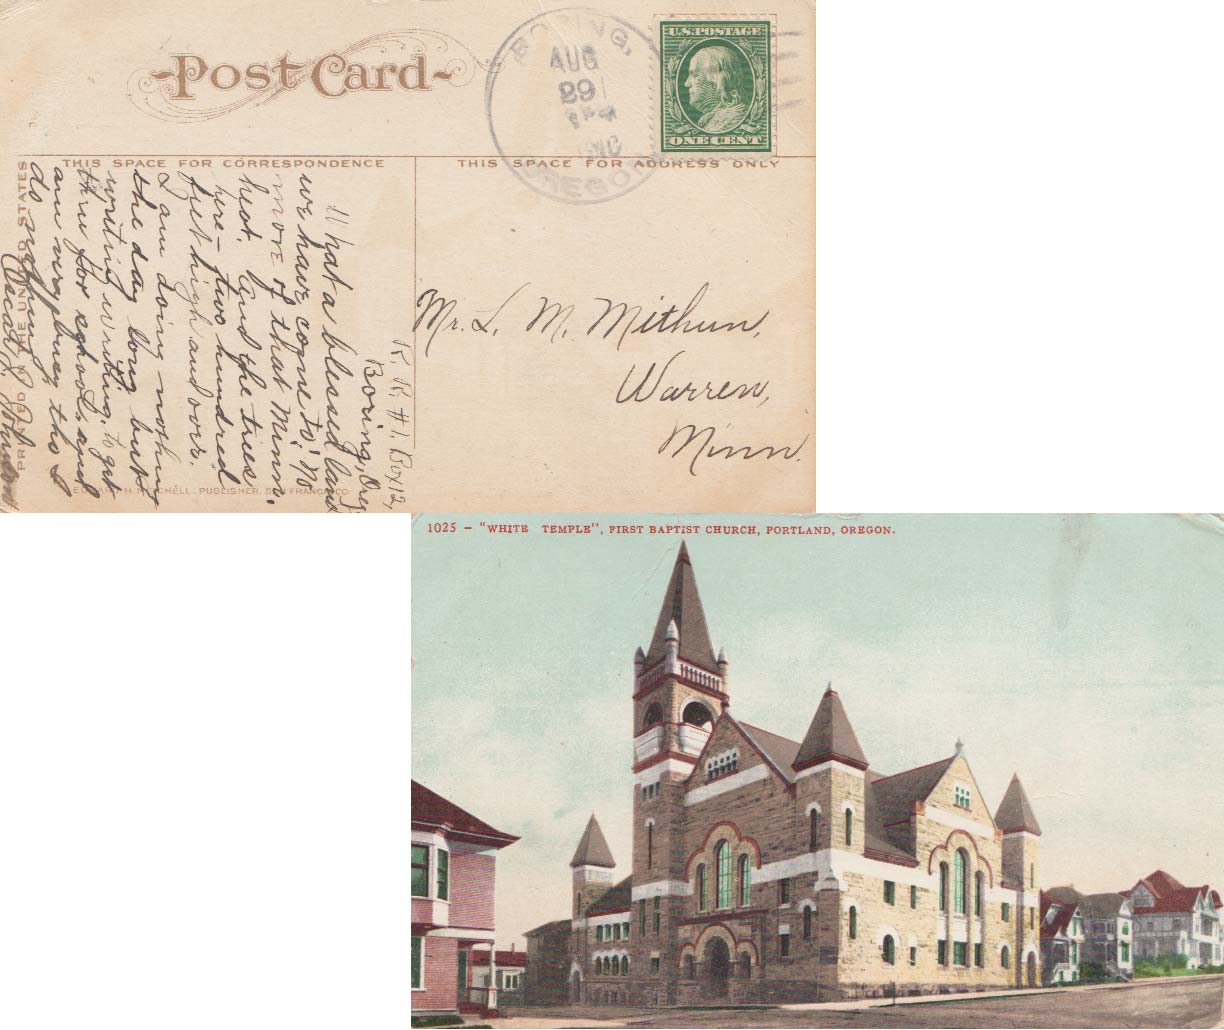 Post Card
BORING,
AUG
29
OREGON
U.S. POSTAGE
ONE CENT
THIS SPACE FOR CORRESPONDENCE
THIS SPACE FOR ADDRESS ONLY
PRINTED IN THE UNITED STATES
R. R. #1. Box 12,
Boring, Ore.
What a blessed land
we have come to! No
more of that Minn.
heat. And the trees
here - two hundred
feet high and over.
I am doing nothing
the day long but
writing, writing, to get
thru for school, and
am very busy tho I
do nothing.
Mr. L. M. Mithun,
Warren,
Minn.
EDWARD H. MITCHELL, PUBLISHER, SAN FRANCISCO
1025 – "WHITE TEMPLE", FIRST BAPTIST CHURCH, PORTLAND, OREGON.